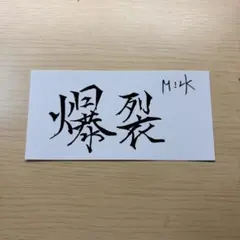 Milk
爆裂